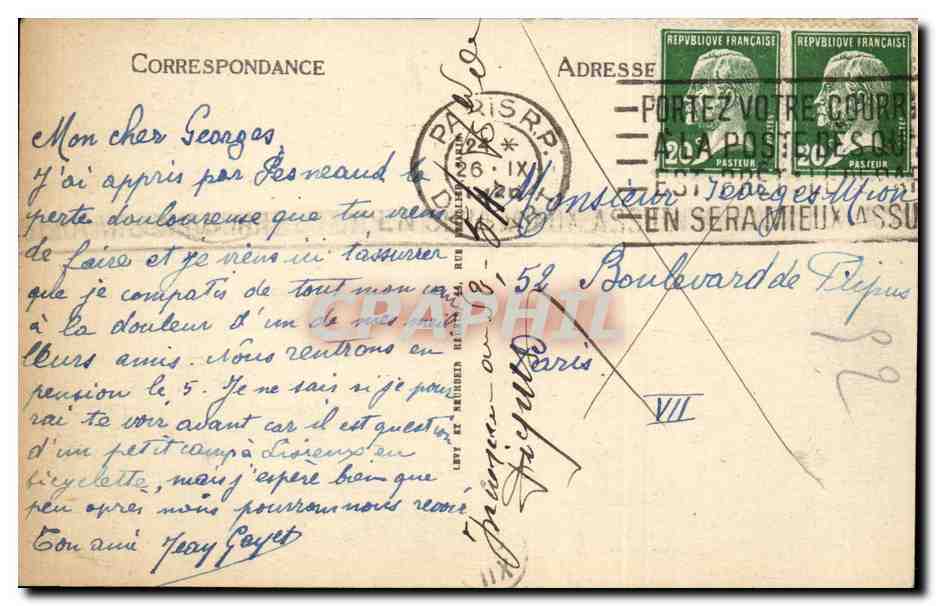 CORRESPONDANCE
Mon cher Georges,
J'ai appris par Pesneaud la
perte douloureuse que tu viens
de faire et je viens ici t'assurrer
que je compatis de tout mon
à la douleur d'un de mes meil
leurs amis. Nous rentrons en
pension le 5. Je ne sais si je pour
rai te voir avant car il est question
d'un petit camp à en
bicyclette, mais j'espère bien que
peu après nous pourrons nous revoir
Ton ami Jean Gayet
LEVY ET NEURDEIN RÉUNIS, 44, RUE LETELLIER, PARIS
ADRESSE
REPVBLIQUE FRANÇAISE
20c
PASTEUR
REPVBLIQUE FRANÇAISE
20c
PASTEUR
PARIS R.P.
26 · IX
PORTEZ VOTRE COURR
A LA POSTE DES QU
EST PRET LE DEPAR
EN SERA MIEUX ASSU
Monsieur Georges
52 Boulevard de Picpus
Paris.
VII
inconnu au 52
Picpus
52
CPAPHIL